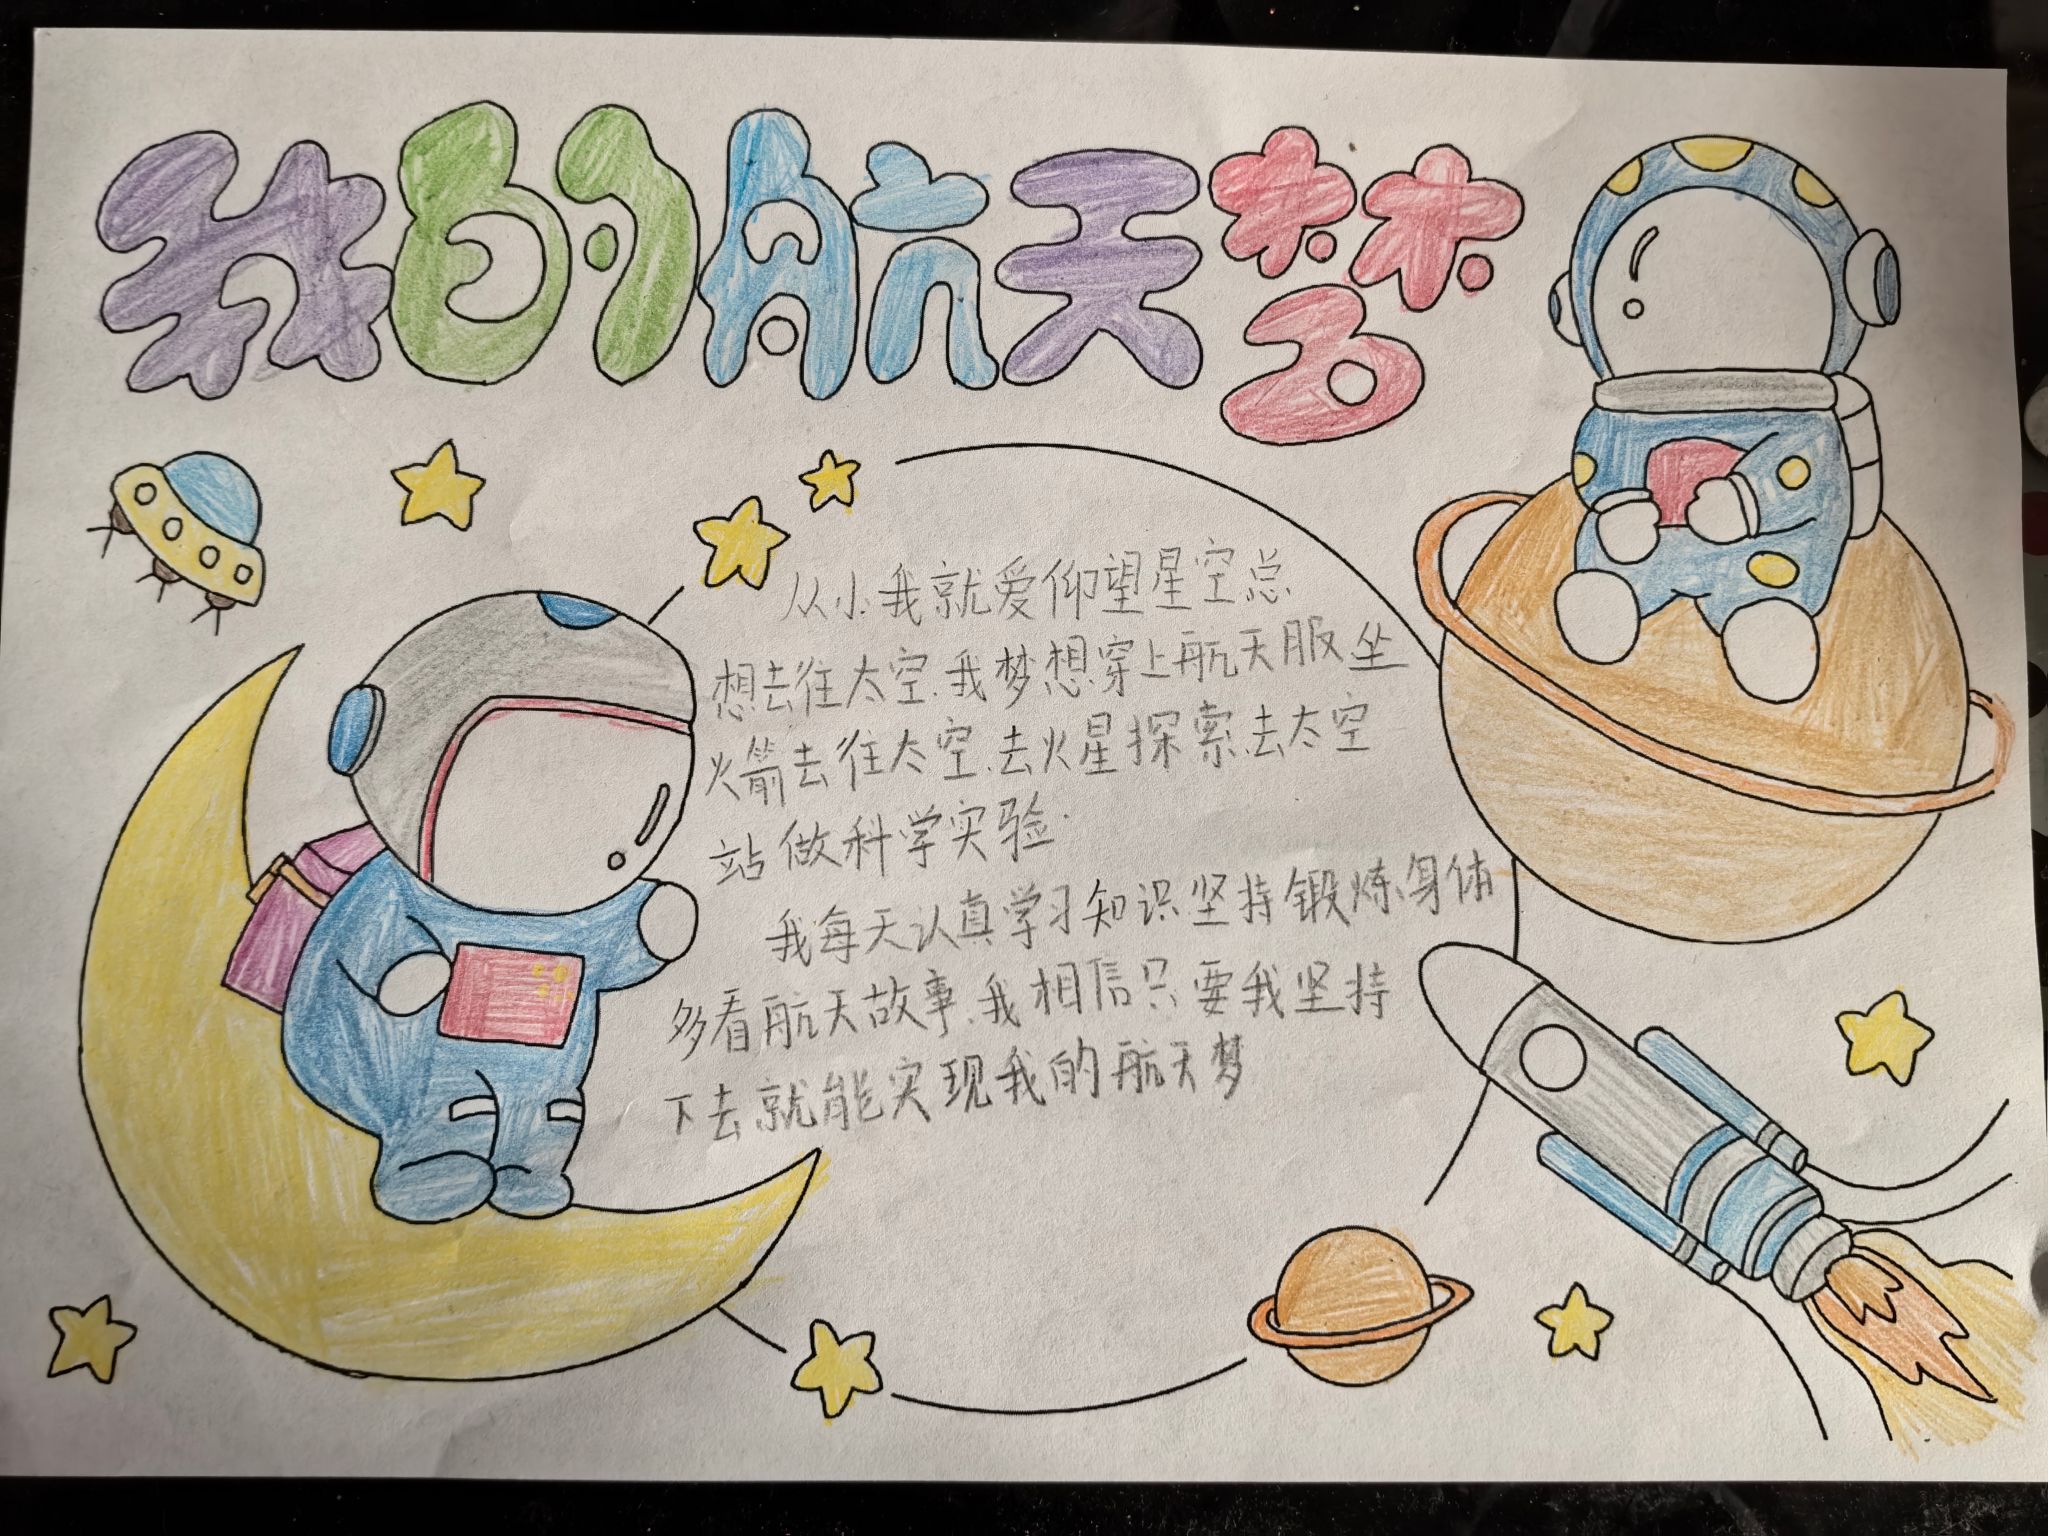 我的航天梦
从小我就爱仰望星空总
想去往太空、我梦想穿上航天服坐
火箭去往太空、去火星探索、去太空
站做科学实验.
我每天认真学习知识坚持锻炼身体
多看航天故事、我相信只要我坚持
下去就能实现我的航天梦